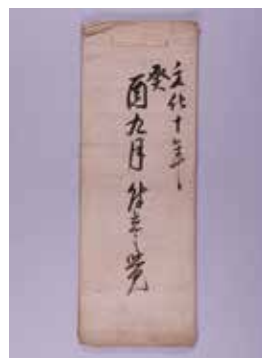 文化十年
癸酉九月 覚